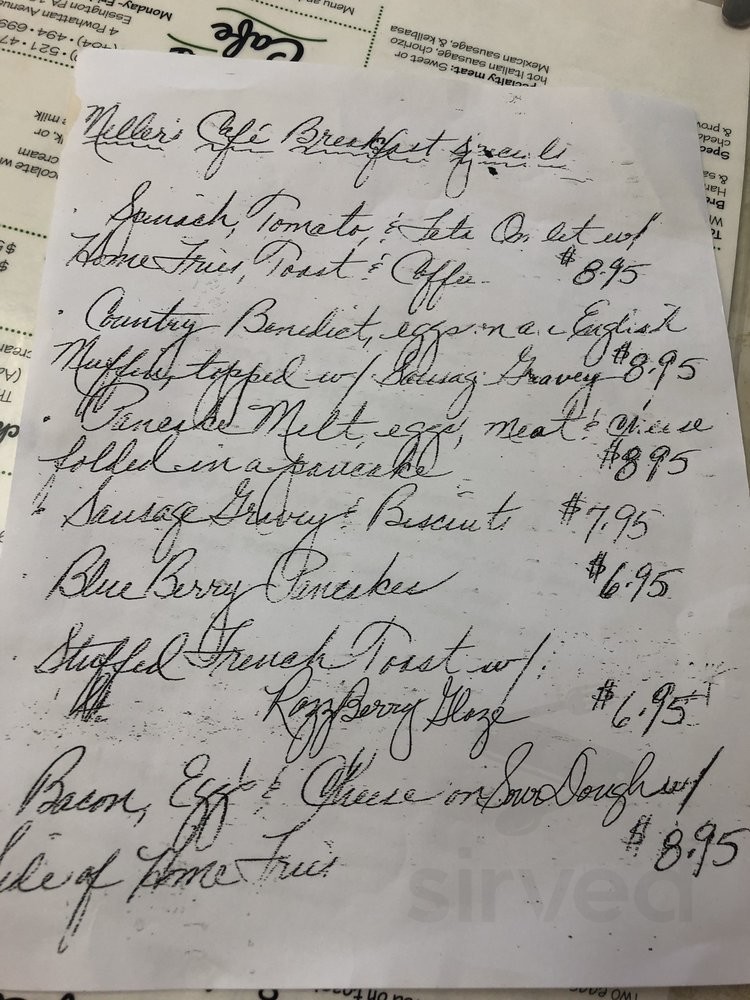 Miller's Café Breakfast Specials
· Spinach, Tomato, & Feta Omlet w/
Home Fries, Toast & Coffee $8.95
· Country Benedict, eggs on a English
Muffin, topped w/ Sausag Gravey $8.95
· Pancake Melt, eggs, meat & cheese
folded in a pancake $8.95
· Sausage Gravey & Biscuits $7.95
Blue Berry Pancakes $6.95
Stuffed French Toast w/
RazzBerry Glaze $6.95
Bacon, Egg & Cheese on Sour Dough w/
Side of Home Fries $8.95
sirved
Cafe
Menu and
4 Powhattan Avenue
Essington PA
Monday-
494-699
521-47
specialty meat: Sweet or
hot Italian sausage, chorizo
Mexican sausage, & kielbasa